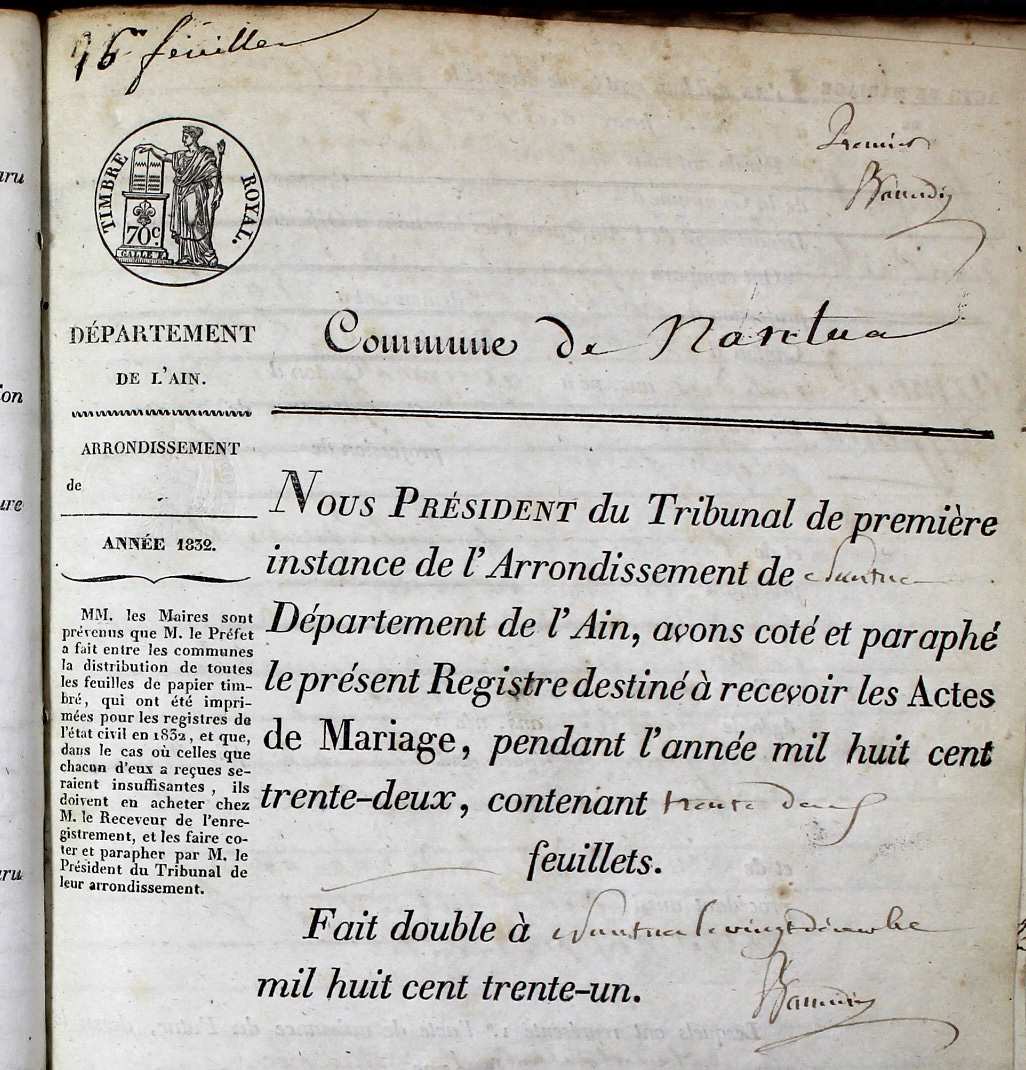 16 feuilles
Premier
Baundin
TIMBRE ROYAL.
70c
DÉPARTEMENT
DE L'AIN.
Commune de Nantua
ARRONDISSEMENT
de
ANNÉE 1832.
MM. les Maires sont
prévenus que M. le Préfet
a fait entre les communes
la distribution de toutes
les feuilles de papier tim-
bré, qui ont été impri-
mées pour les registres de
l'état civil en 1832, et que,
dans le cas où celles que
chacun d'eux a reçues se-
raient insuffisantes, ils
doivent en acheter chez
M. le Receveur de l'enre-
gistrement, et les faire co-
ter et parapher par M. le
Président du Tribunal de
leur arrondissement.
NOUS PRÉSIDENT du Tribunal de première
instance de l'Arrondissement de Nantua
Département de l'Ain, avons coté et paraphé
le présent Registre destiné à recevoir les Actes
de Mariage, pendant l'année mil huit cent
trente-deux, contenant trente deux
feuillets.
Fait double à Nantua le vingt décembre
mil huit cent trente-un.